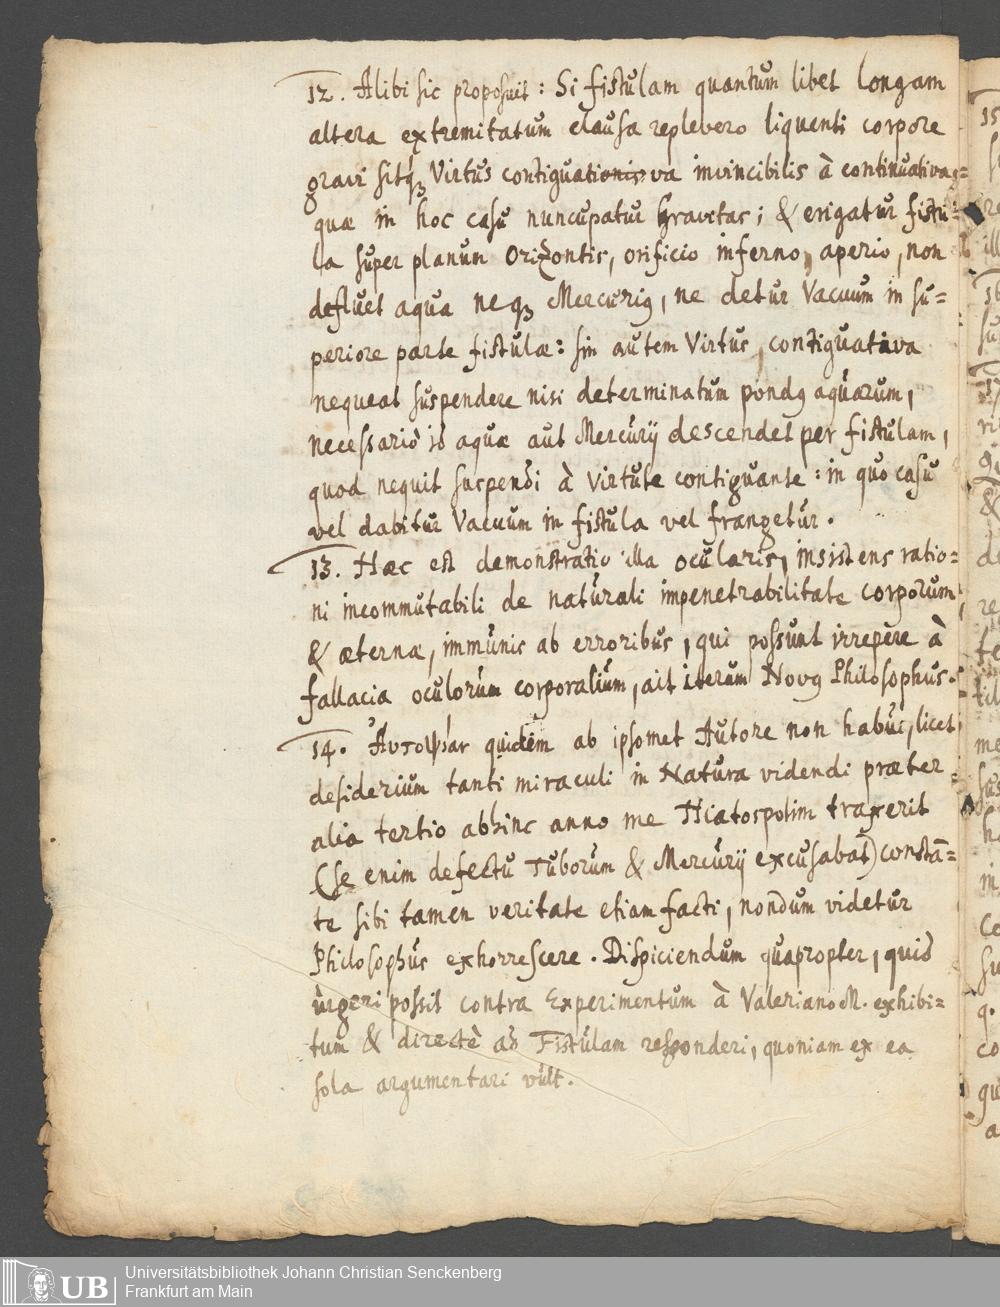 12. Alibi sic proposuit: Si fistulam quantum libet longam
altera extremitatum clausa replevero liquenti corpore
gravi sitq3 Virtus contiguationis va invincibilis à continuativa,=
quæ in hoc casu nuncupatur Gravitas; & erigatur fistu=
la super planum Orizontis, orificio inferno, aperio, non
defluet aqua neq3 Mercurig, ne detur Vacuum in su=
periore parte fistulæ: sin autem Virtus, contiguativa
nequeat suspendere nisi determinatum pondg aquarum,
necessariò id aquæ aut Mercurij descendet per fistulam,
quod nequit suspendi à Virtute contiguante: in quo casu
vel dabitur Vacuum in fistula vel frangetur.
13. Hæc est demonstratio illa ocularis, insistens ratio=
ni incommutabili de naturali impenetrabilitate corporum,
& æterna, immunis ab erroribus, qui possunt irrepere à
fallacia oculorum corporalium, ait iterum Novg Philosophus.
14. Ἀυτοψίαν quidem ab ipsomet Autore non habui, licet
desiderium tanti miraculi in Natura videndi præter
alia tertio abhinc anno me Hiatospolim traxerit
(se enim defectu Tuborum & Mercurij excusabat) constā=
te sibi tamen veritate etiam facti, nondum videtur
Philosophus exhorrescere. Dispiciendum quapropter, quid
urgeri possit contra Experimentum à Valeriano M. exhibi=
tum & directè ad Fistulam responderi, quoniam ex ea
sola argumentari vult.
Universitätsbibliothek Johann Christian Senckenberg
Frankfurt am Main
UB